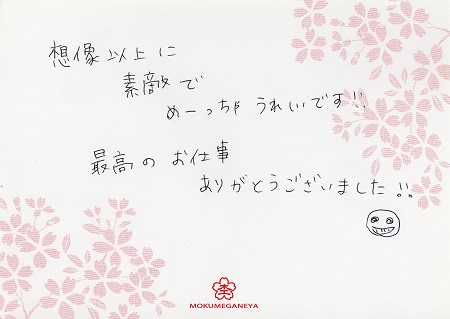 想像以上に
素敵で
めーっちゃうれいです!!
最高のお仕事
ありがとうございました!!
MOKUMEGANEYA